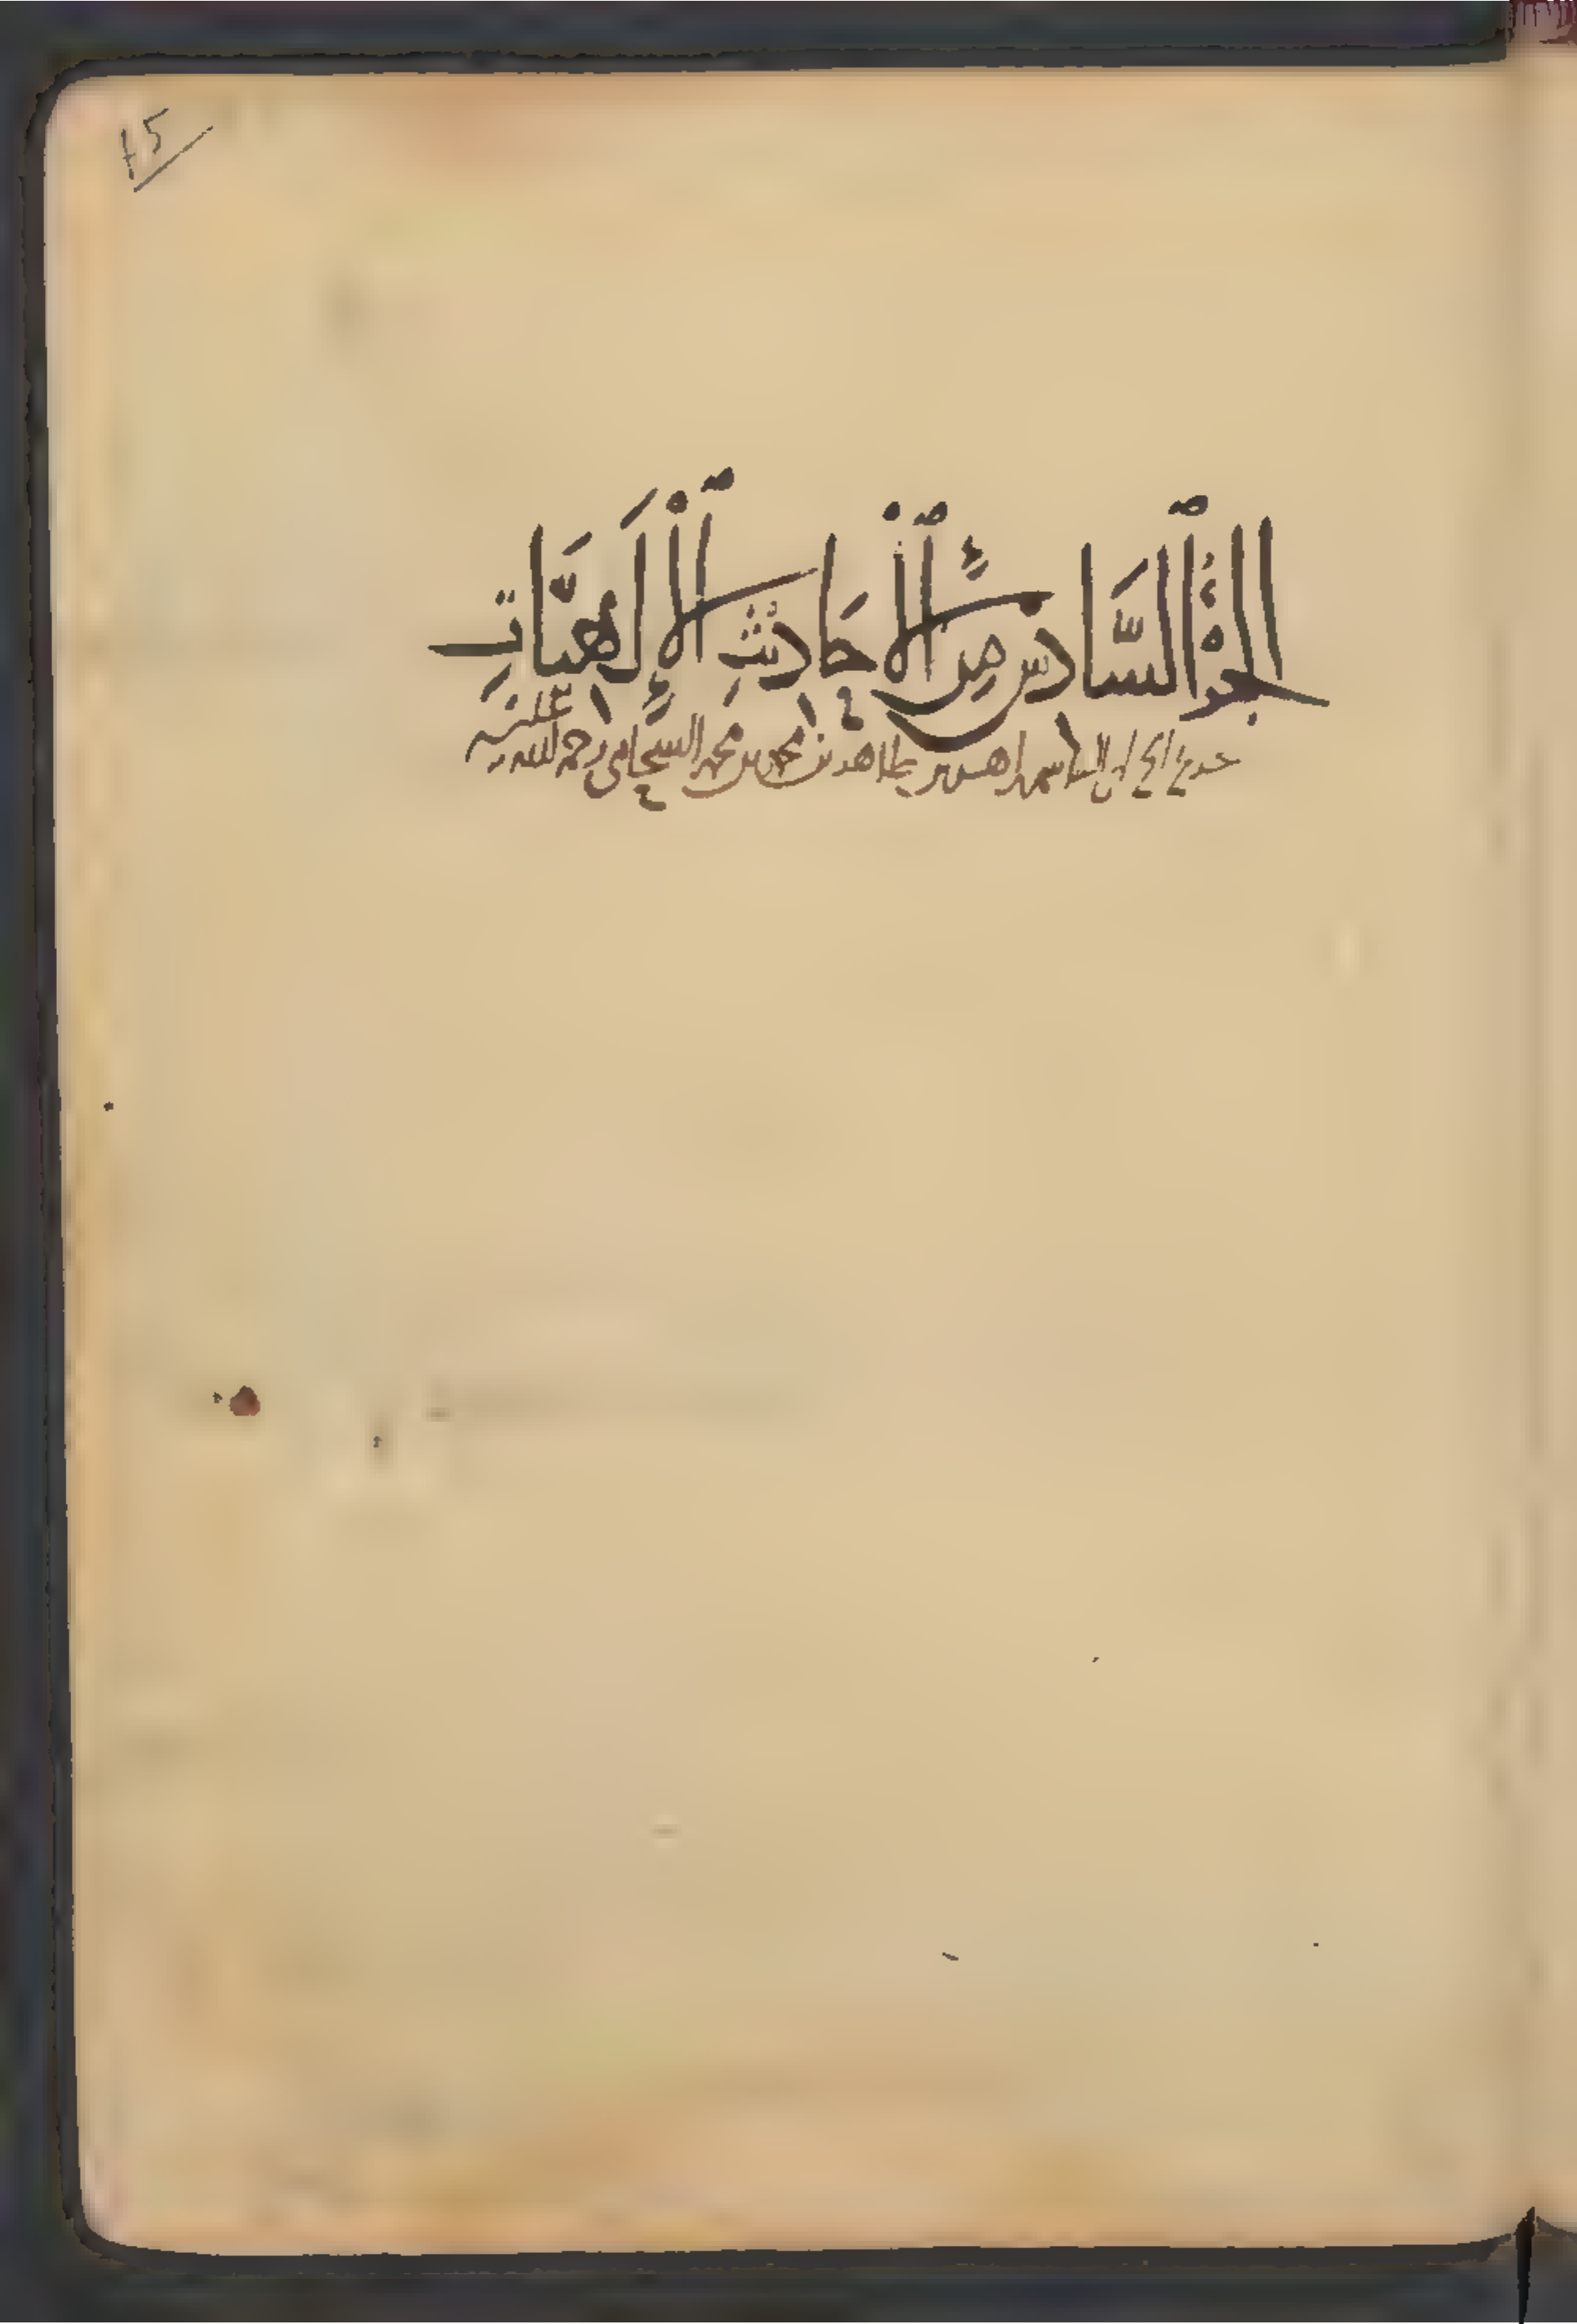 ٦٥
الجُزْءُ السَّادِس مِنَ الأَحَادِيثِ الإِلَهِيَّاتِ
تخريج الشيخ أبي القاسم زاهر بن طاهر بن محمد بن محمد الشحامي رحمة الله عليه